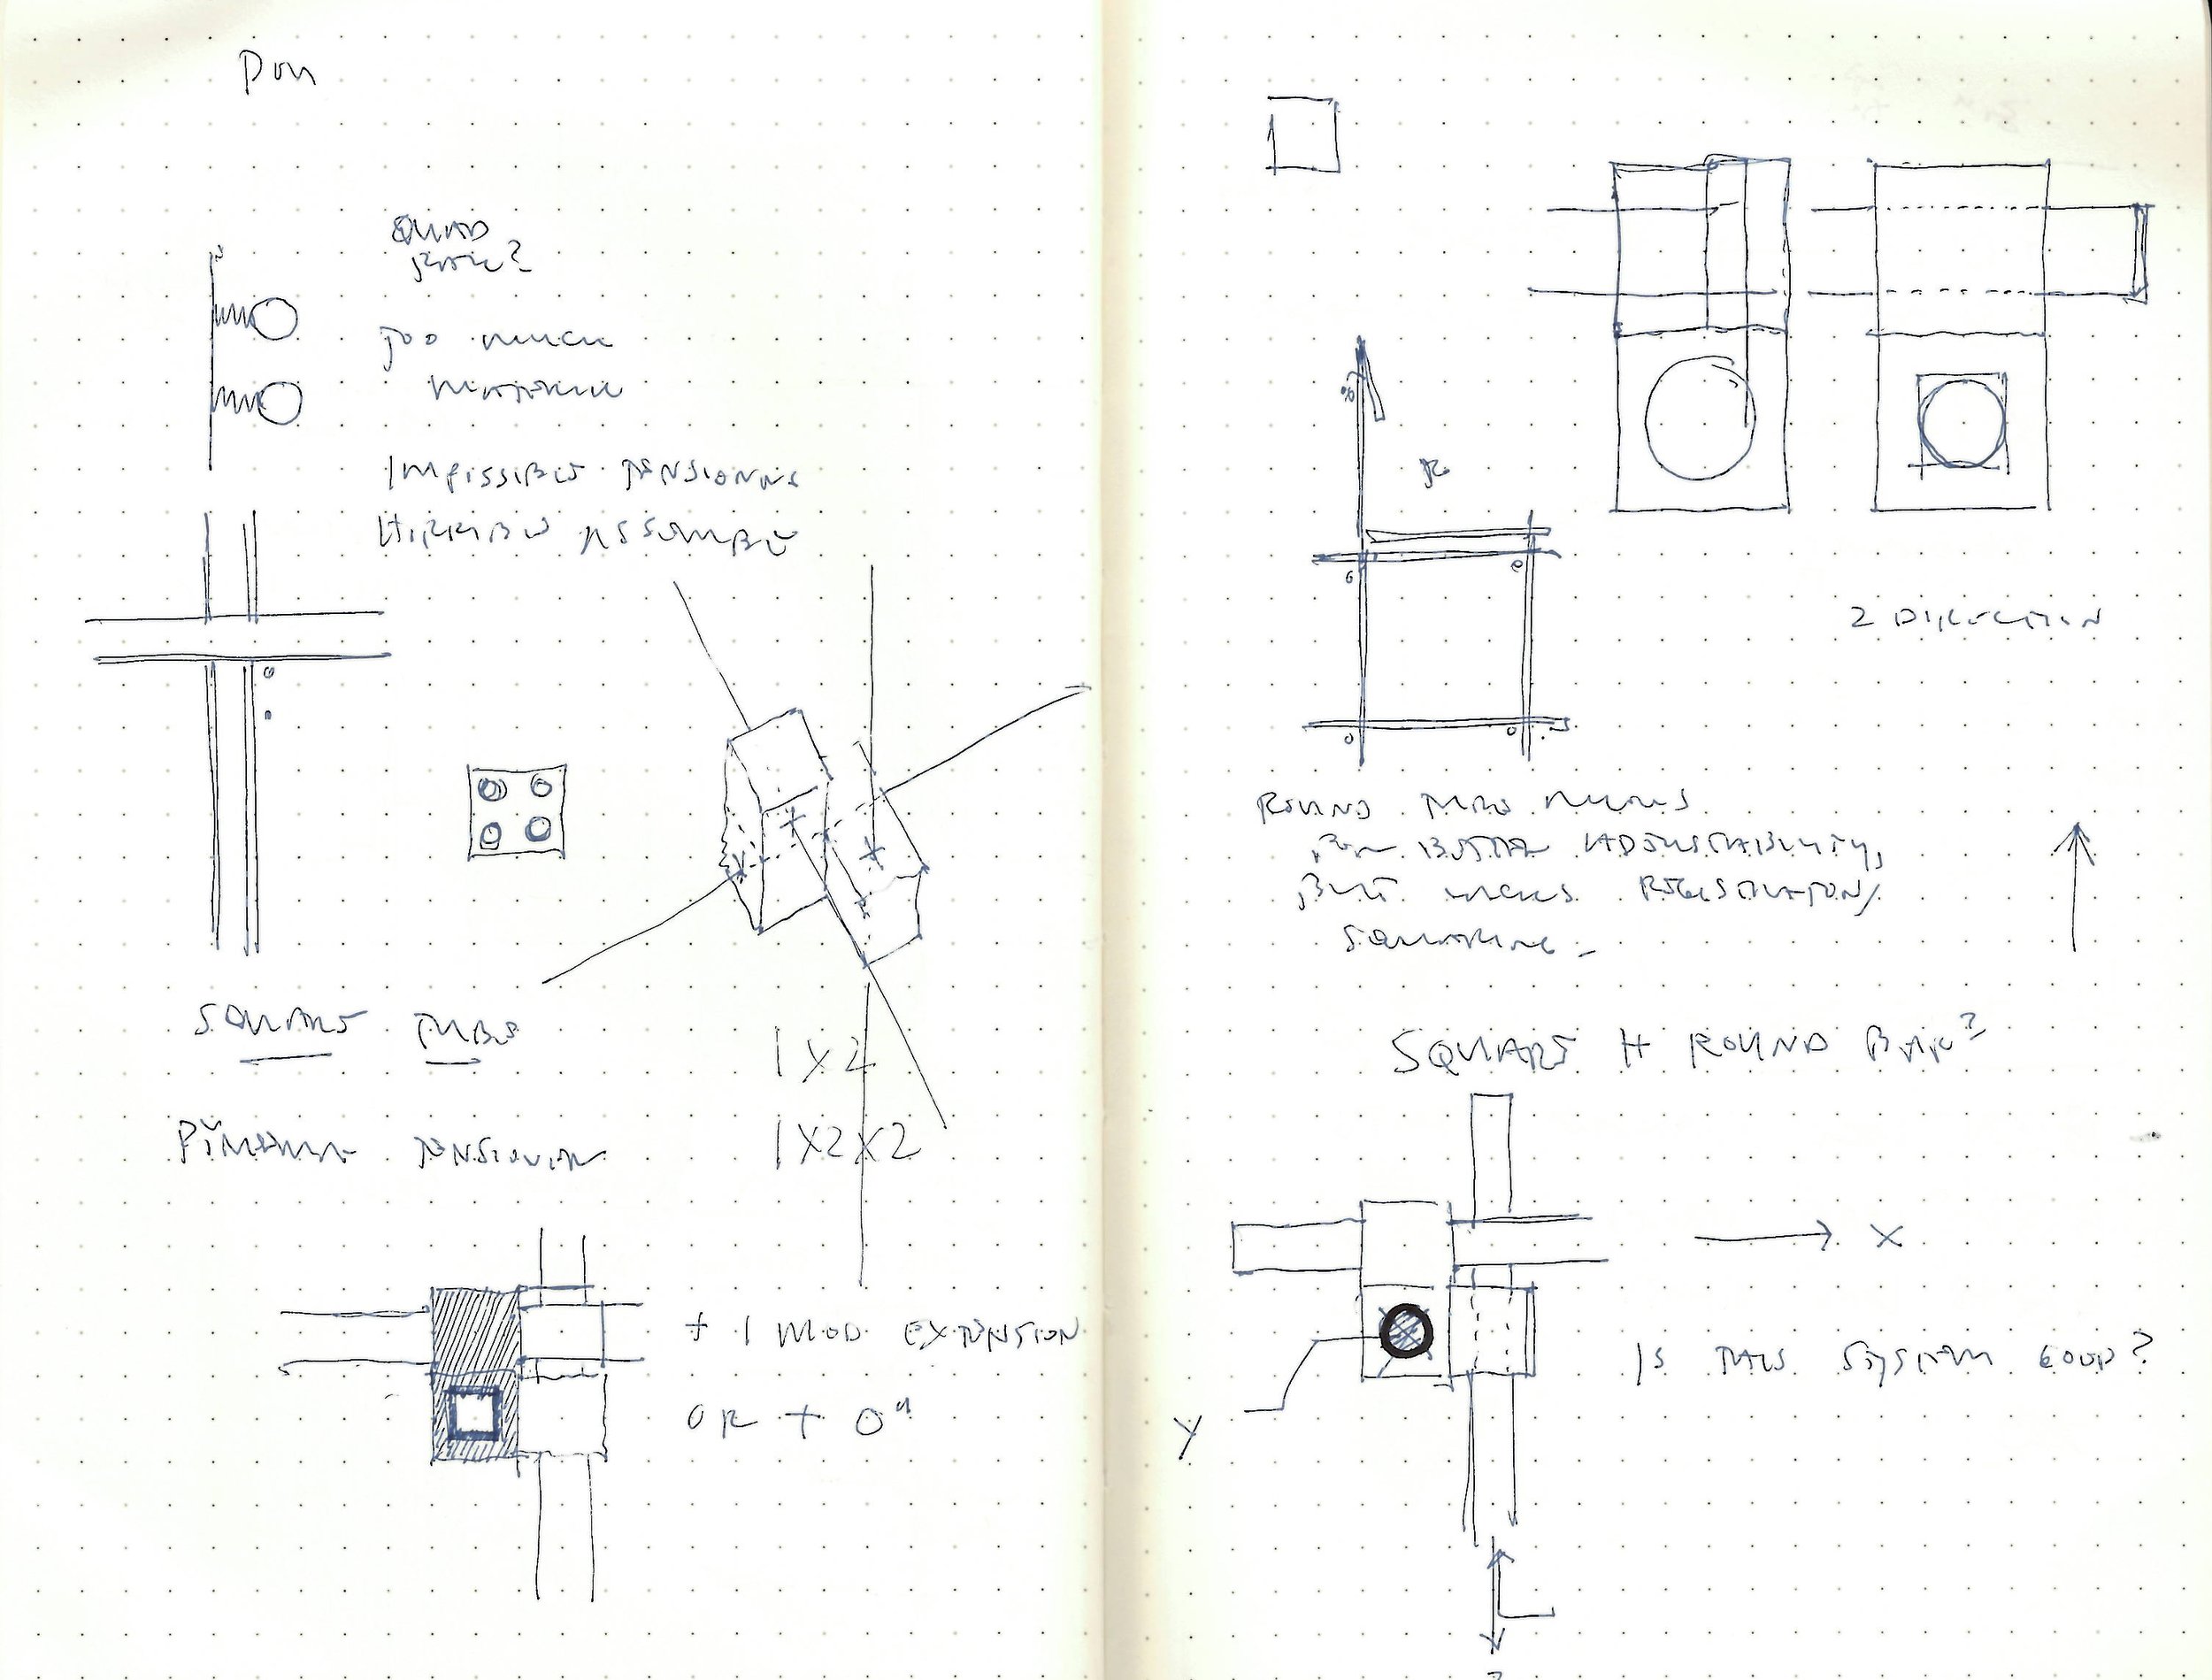 QUAD
TOO MUCH
MATERIAL
IMPOSSIBLE TENSIONING
HORRIBLE ASSEMBLY
SQUARE TUBE
TENSION
1X2
1X2X2
+ 1 MOD EXTENSION
OR + 0"
2 DIRECTION
ROUND TUBE
FOR BETTER ADJUSTABILITY,
BUT LACKS REGISTRATION/
SQUARING
SQUARE + ROUND BAR?
X
IS THIS SYSTEM GOOD?
Y